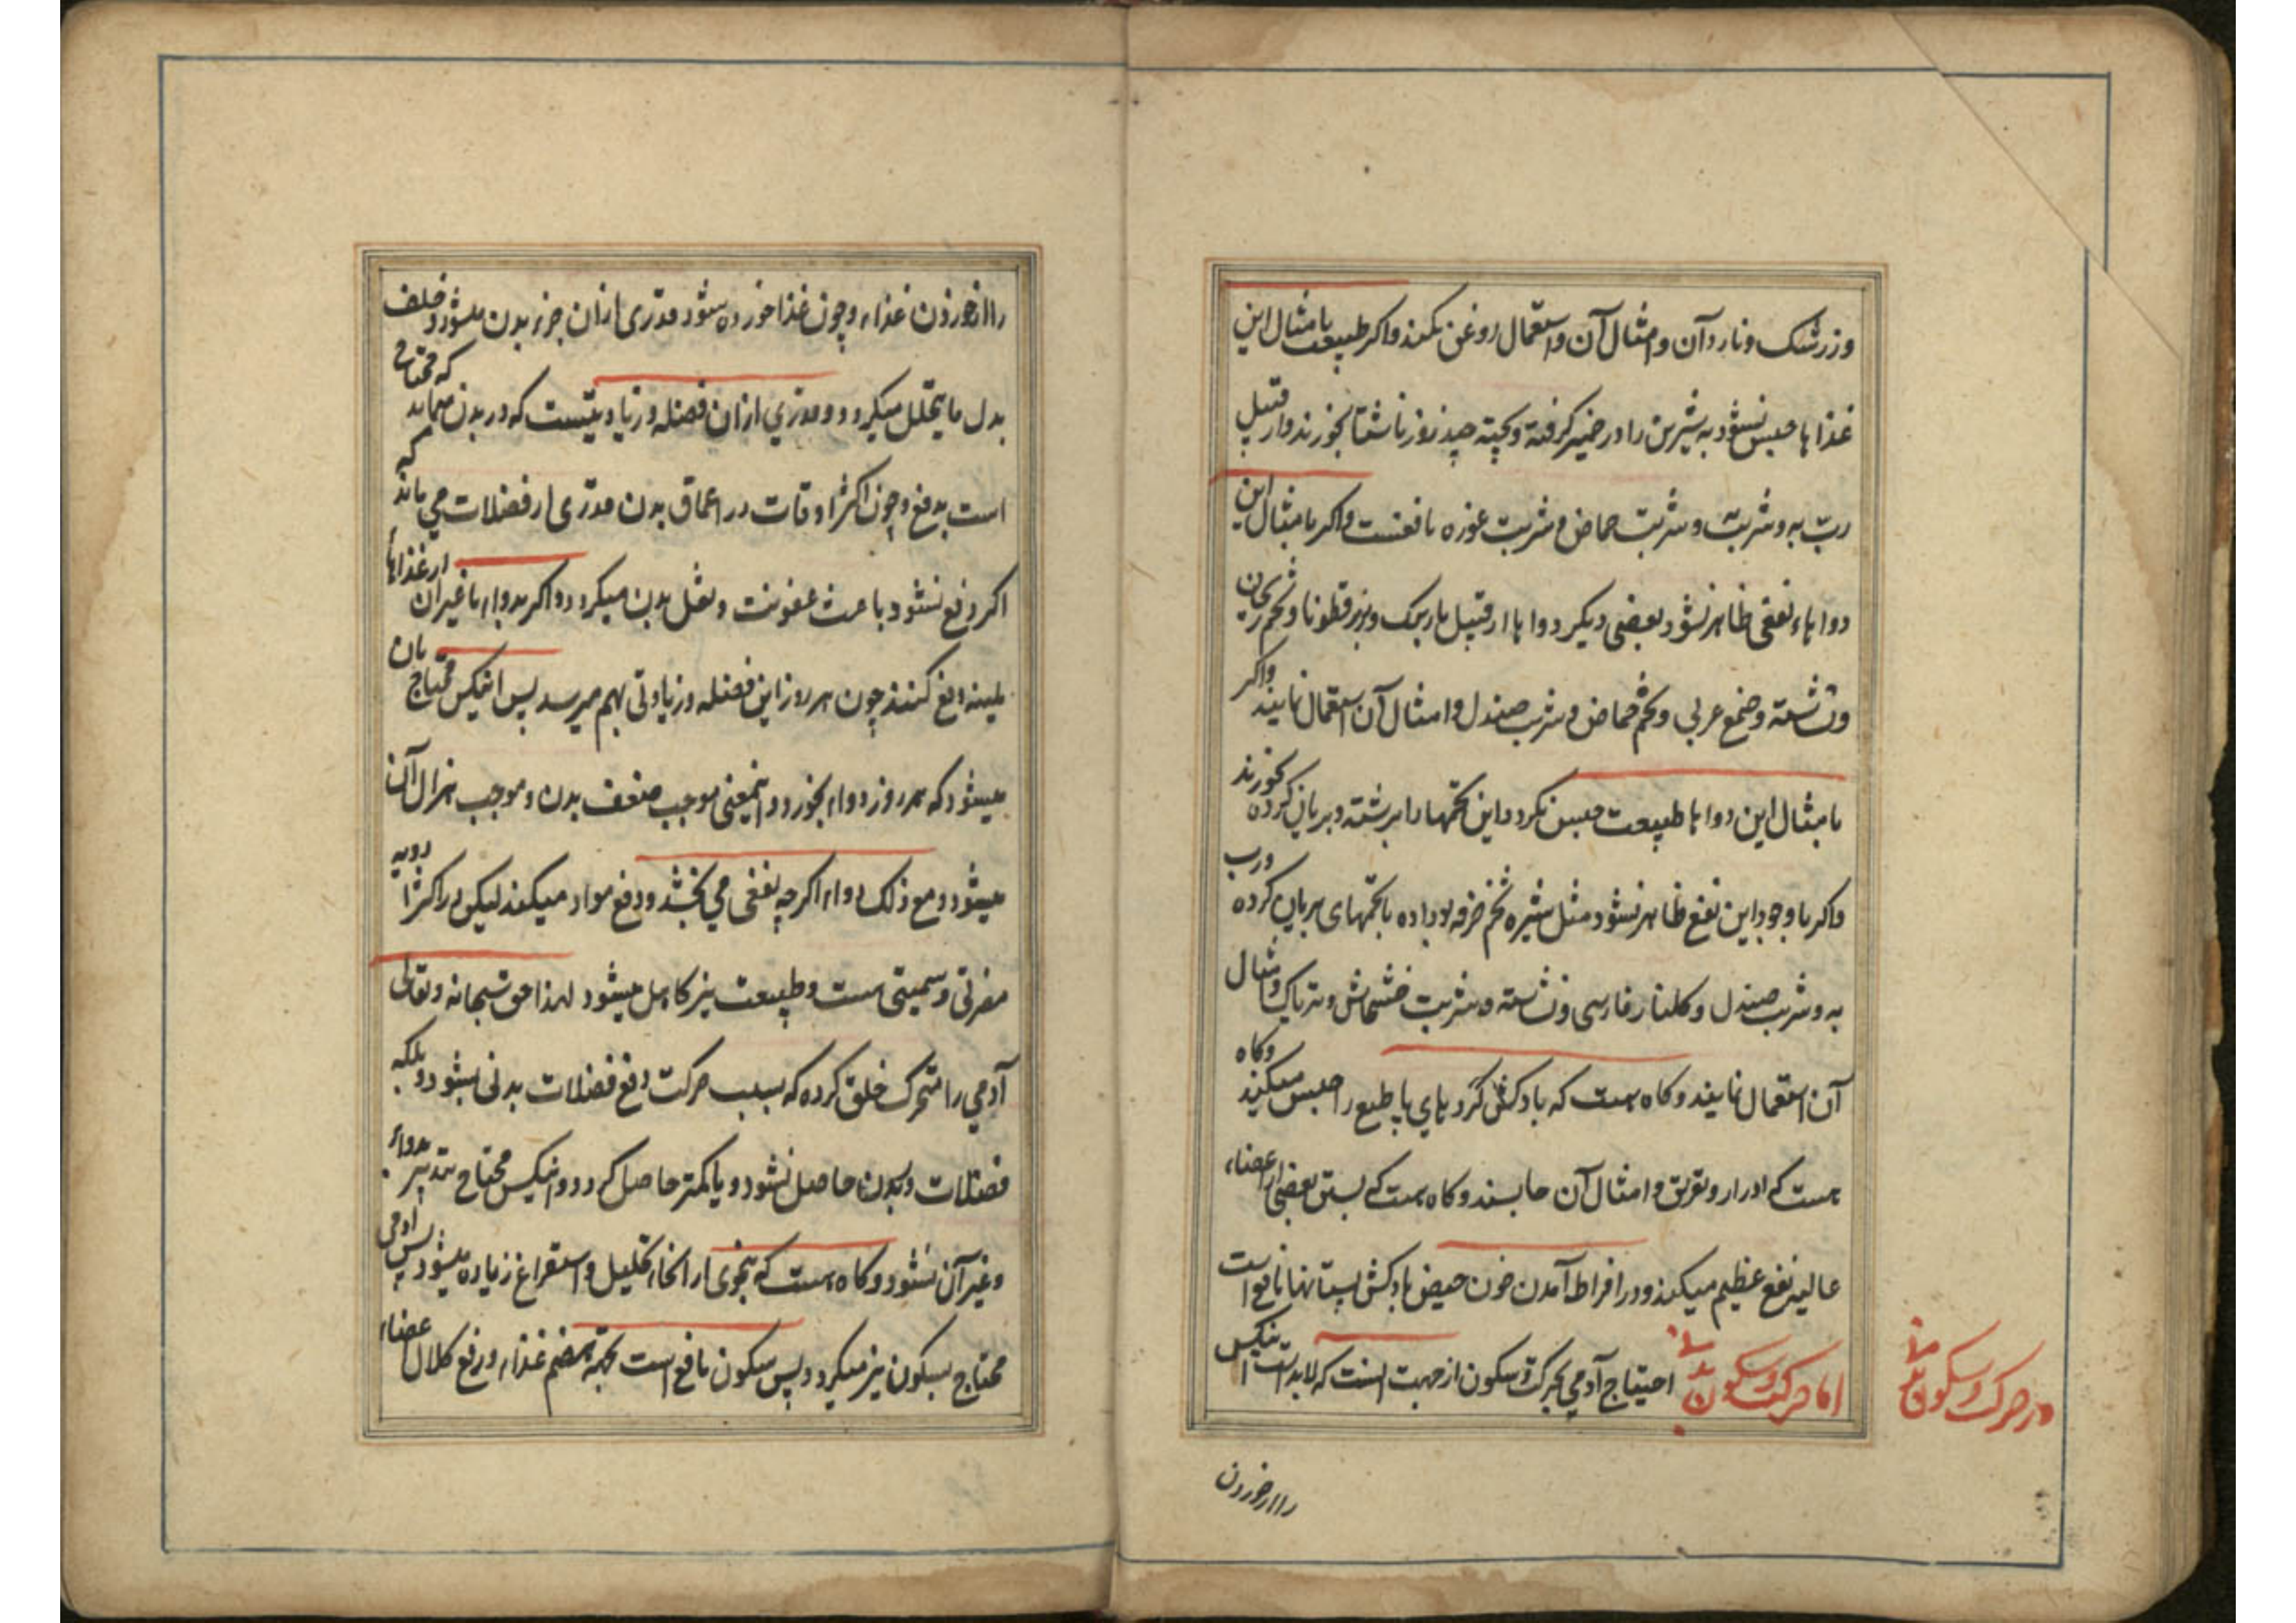 وزرشک و ناردآن و امثال آن و استعمال روغن نکنند و اکر طبیعت با مثال این
غذاها حبس نشود به شیرین را در خمیر کرفته و پخته چند روز ناشتا بخورند و از قبیل
ربّ به و شربت و شربت حماض و شربت غوزه نافعست و اکر با مثال این
دواهاء نفعی ظاهر نشود بعضی دیکر دواها از قبیل بارتنک و بزرقطونا و تخم ریحان
و نشاسته و صمغ عربی و تخم حماض و شربت صندل و امثال آن استعمال نمایند و اکر
با مثال این دواها طبیعت حبس نکردد این تخمها را برشته و بریان کرده بخورند
و اکر با وجود این نفع ظاهر نشود مثل شیره تخم خرفه بو داده با تخمهای بریان کرده و رب
به و شربت صندل و کلنار فارسی و نشاسته و شربت خشخاش و تریاک و امثال
آن استعمال نمایند و کاه هست که بادکش کرد پای ها طبع را حبس میکند و کاه
هست که ادرار و تعریق و امثال آن حابسند و کاه هست که بستن بعضی از اعضاء
عالیه نفع عظیم میکند و در افراط آمدن خون حیض بادکش پستانها نافع است
اما حرکت و سکون بدنی احتیاج آدمی بحرکت و سکون از جهت اینست که لابد است اینکس
در حرکت و سکون بدنی
را از خوردن
را از خوردن غذاء و چون غذا خورده شود قدری از ان جزء بدن میشود و خلف
بدل ما یتحلل میکردد و قدری از ان فضله و زیادتیست که در بدن میماند که محتاج
است بدفع و چون اکثر اوقات در اعماق بدن قدری از فضلات می ماند که
اکر دفع نشود باعث عفونت و ثقل بدن میکردد و اکر بدواء یا غیر ان از غذاها
ملینه دفع کنند چون هر روز این فضله و زیادتی بهم میرسد پس اینکس محتاج بان
میشود که هر روز دواء بخورد و اینمعنی موجب ضعف بدن و موجب هزال آن
میشود و مع ذلک دواء اکرچه نفعی می بخشد و دفع مواد میکند لیکن در اکثر ادویه
مضرتی و سمیتی هست و طبیعت نیز کاهل میشود لهذا حق سبحانه و تعالی
آدمی را متحرک خلق کرده که بسبب حرکت دفع فضلات بدنی بشود و بلکه
فضلات در بدن حاصل نشود و یا کمتر حاصل کردد و اینکس محتاج بتدبیر دواء
و غیر آن نشود و کاه هست که بنحوی از انحاء تحلیل و استفراغ زیاده میشود پس آدمی
محتاج بسکون نیز میکردد پس سکون نافع است بجهة هضم غذاء و رفع کلال اعضاء